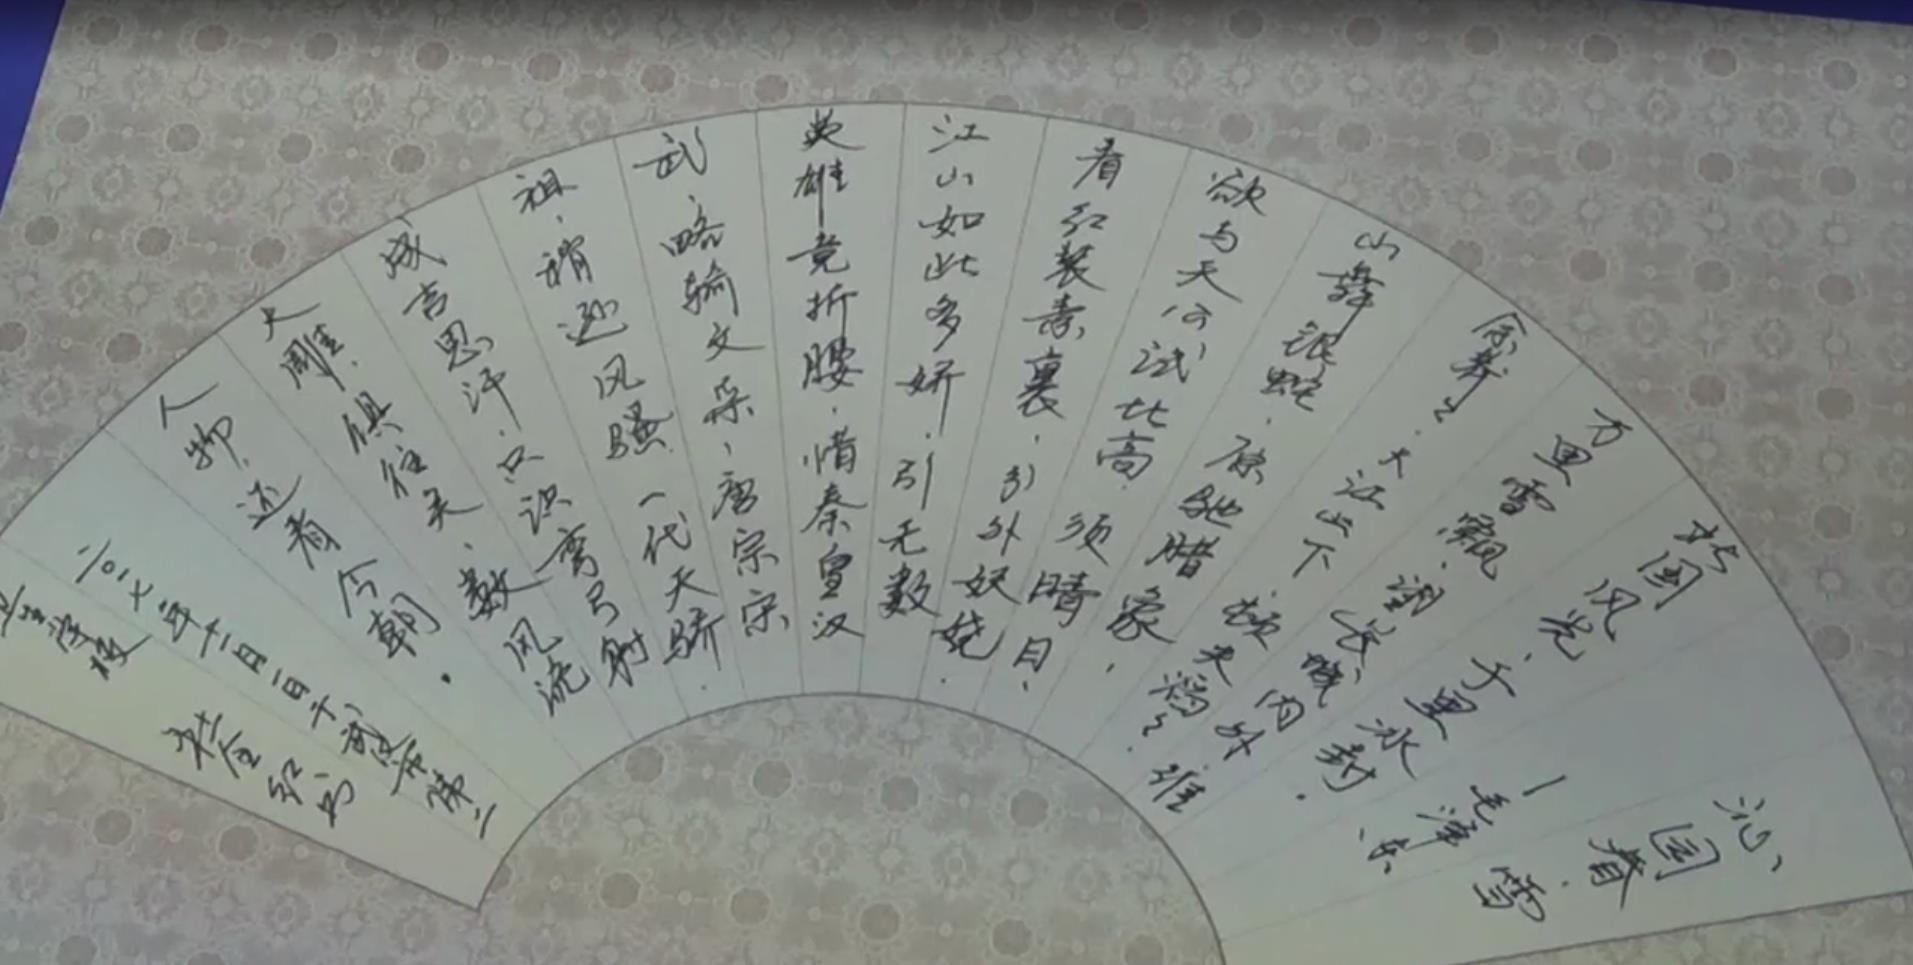 沁园春·雪
—毛泽东
北国风光、千里冰封.
万里雪飘.望长城内外.惟
余莽々.大江上下.顿失滔々.
山舞银蛇.原驰腊象,
欲与天公试比高.须晴日、
看红装素裹,引外妖娆.
江山如此多娇.引无数
英雄竞折腰.惜秦皇汉
武、略输文采,唐宗宋
祖,稍逊风骚.一代天骄.
成吉思汗.只识弯弓射
大雕.俱往矣、数风流
人物.还看今朝.
二〇一七年十一月一日十八
学校
红书